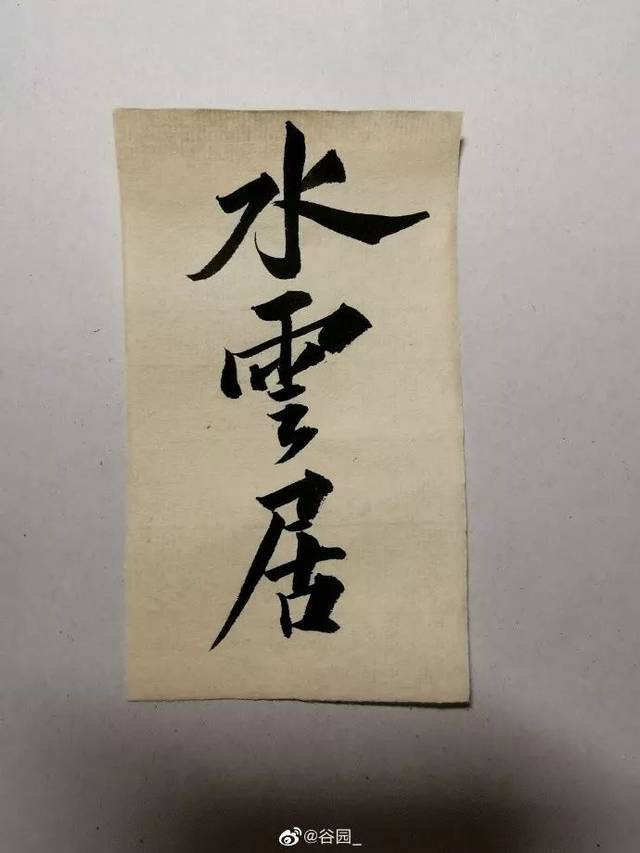 水雲居
@谷园_